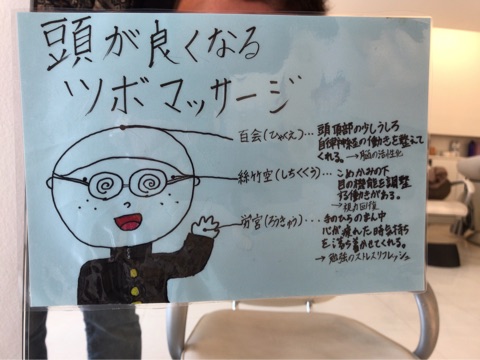 頭が良くなる
ツボマッサージ
百会(ひゃくえ)… 頭頂部の少しうしろ
自律神経の働きを整えて
くれる。
→脳の活性化
絲竹空(しちくくう)… こめかみの下
目の機能を調整
する働きがある。
→視力回復
労宮(ろうきゅう)… 手のひらのまん中
心が疲れた時気持ち
を落ち着かせてくれる。
→勉強のストレスリフレッシュ